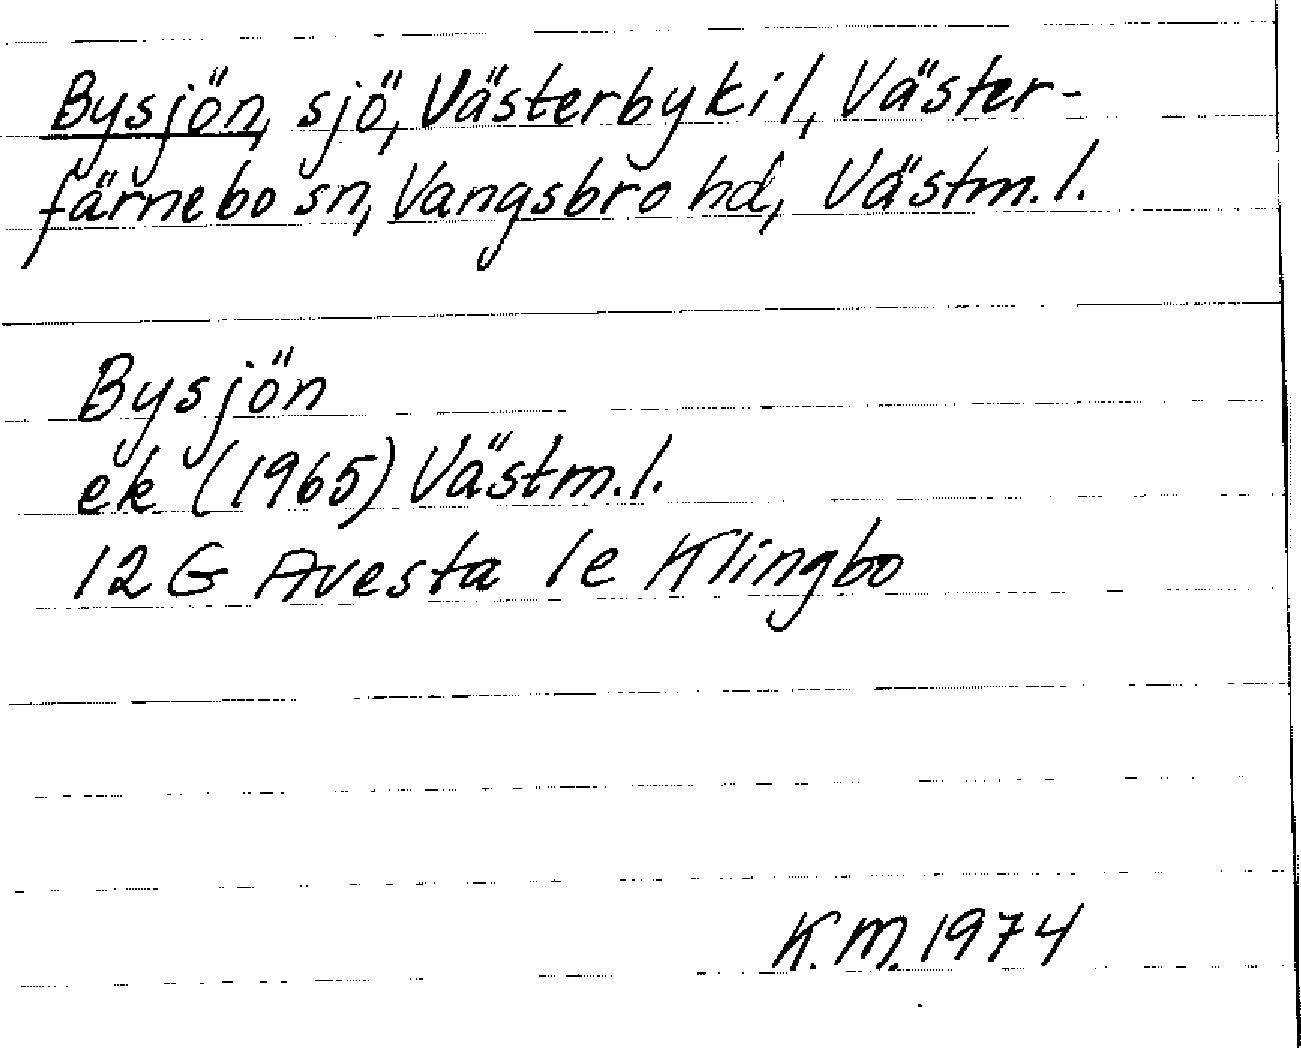 Bysjön, sjö, Västerbykil, Väster-
färnebo sn, Vangsbro hd, Västm.l.
Bysjön
ek (1965) Västm.l.
12 G Avesta 1e Klingbo
K.M. 1974